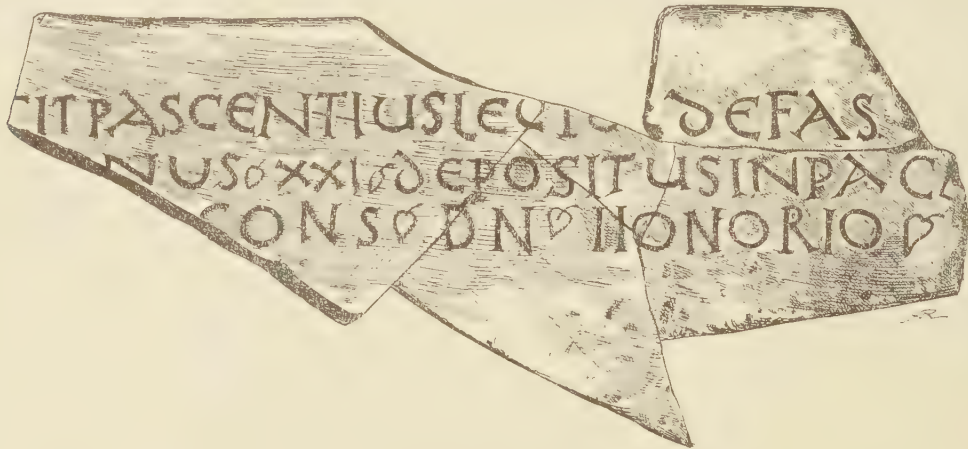 CITPASCENTIUSLECTO DEFAS
NUS XXI DEPOSITUSINPACE
CONS DN HONORIO